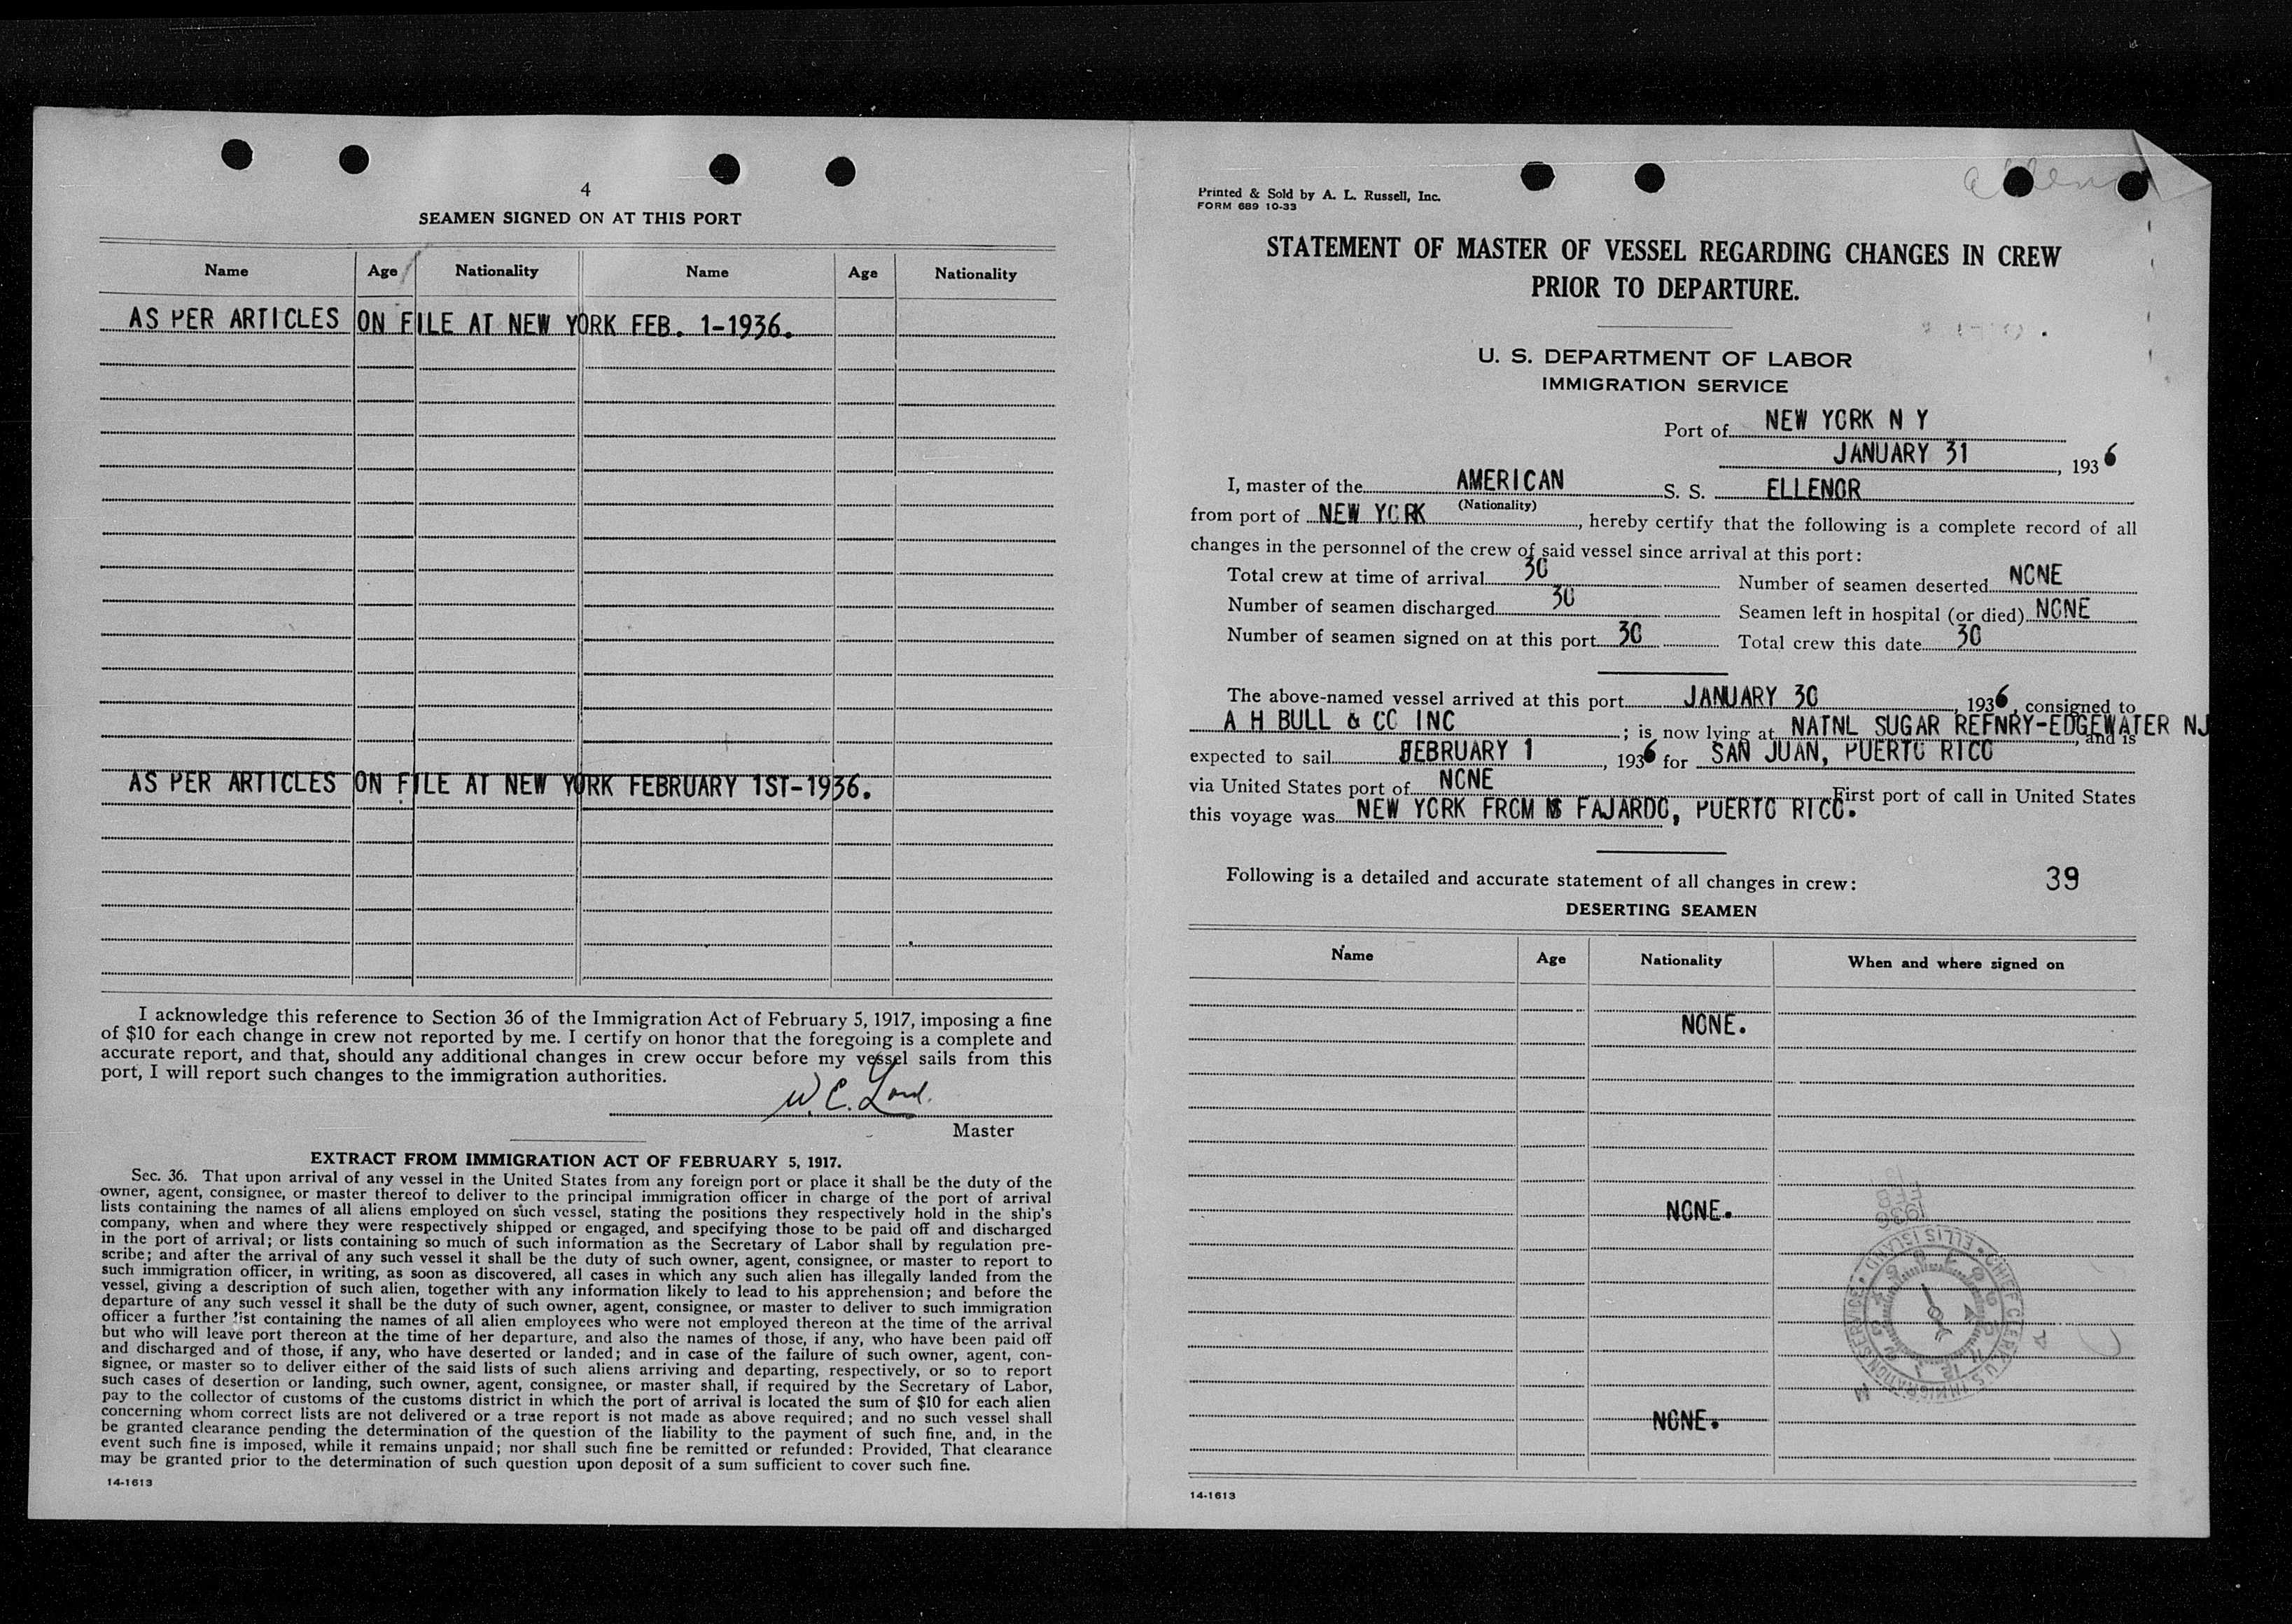 4
SEAMEN SIGNED ON AT THIS PORT
Name Age Nationality Name Age Nationality
AS PER ARTICLES ON FILE AT NEW YORK FEB. 1-1936.
AS PER ARTICLES ON FILE AT NEW YORK FEBRUARY 1ST-1936.
I acknowledge this reference to Section 36 of the Immigration Act of February 5, 1917, imposing a fine
of $10 for each change in crew not reported by me. I certify on honor that the foregoing is a complete and
accurate report, and that, should any additional changes in crew occur before my vessel sails from this
port, I will report such changes to the immigration authorities.
W. C. Lord.
Master
EXTRACT FROM IMMIGRATION ACT OF FEBRUARY 5, 1917.
Sec. 36. That upon arrival of any vessel in the United States from any foreign port or place it shall be the duty of the
owner, agent, consignee, or master thereof to deliver to the principal immigration officer in charge of the port of arrival
lists containing the names of all aliens employed on such vessel, stating the positions they respectively hold in the ship's
company, when and where they were respectively shipped or engaged, and specifying those to be paid off and discharged
in the port of arrival; or lists containing so much of such information as the Secretary of Labor shall by regulation pre-
scribe; and after the arrival of any such vessel it shall be the duty of such owner, agent, consignee, or master to report to
such immigration officer, in writing, as soon as discovered, all cases in which any such alien has illegally landed from the
vessel, giving a description of such alien, together with any information likely to lead to his apprehension; and before the
departure of any such vessel it shall be the duty of such owner, agent, consignee, or master to deliver to such immigration
officer a further list containing the names of all alien employees who were not employed thereon at the time of the arrival
but who will leave port thereon at the time of her departure, and also the names of those, if any, who have been paid off
and discharged and of those, if any, who have deserted or landed; and in case of the failure of such owner, agent, con-
signee, or master so to deliver either of the said lists of such aliens arriving and departing, respectively, or so to report
such cases of desertion or landing, such owner, agent, consignee, or master shall, if required by the Secretary of Labor,
pay to the collector of customs of the customs district in which the port of arrival is located the sum of $10 for each alien
concerning whom correct lists are not delivered or a true report is not made as above required; and no such vessel shall
be granted clearance pending the determination of the question of the liability to the payment of such fine, and, in the
event such fine is imposed, while it remains unpaid; nor shall such fine be remitted or refunded: Provided, That clearance
may be granted prior to the determination of such question upon deposit of a sum sufficient to cover such fine.
14-1613
Printed & Sold by A. L. Russell, Inc.
FORM 689 10-33
STATEMENT OF MASTER OF VESSEL REGARDING CHANGES IN CREW
PRIOR TO DEPARTURE.
U. S. DEPARTMENT OF LABOR
IMMIGRATION SERVICE
Port of NEW YORK N Y
JANUARY 31, 1936
I, master of the AMERICAN S. S. ELLENOR
(Nationality)
from port of NEW YORK, hereby certify that the following is a complete record of all
changes in the personnel of the crew of said vessel since arrival at this port:
Total crew at time of arrival 30 Number of seamen deserted NONE
Number of seamen discharged 30 Seamen left in hospital (or died) NONE
Number of seamen signed on at this port 30 Total crew this date 30
The above-named vessel arrived at this port JANUARY 30, 1936, consigned to
A H BULL & CO INC; is now lying at NATNL SUGAR REFNRY-EDGEWATER NJ, and is
expected to sail FEBRUARY 1, 1936 for SAN JUAN, PUERTO RICO
via United States port of NONE First port of call in United States
this voyage was NEW YORK FROM FAJARDO, PUERTO RICO.
Following is a detailed and accurate statement of all changes in crew: 39
DESERTING SEAMEN
Name Age Nationality When and where signed on
NONE.
NONE.
1936
FEB
CHIEF CLERK U.S. IMMIGRATION SERVICE • ELLIS ISLAND
NONE.
14-1613